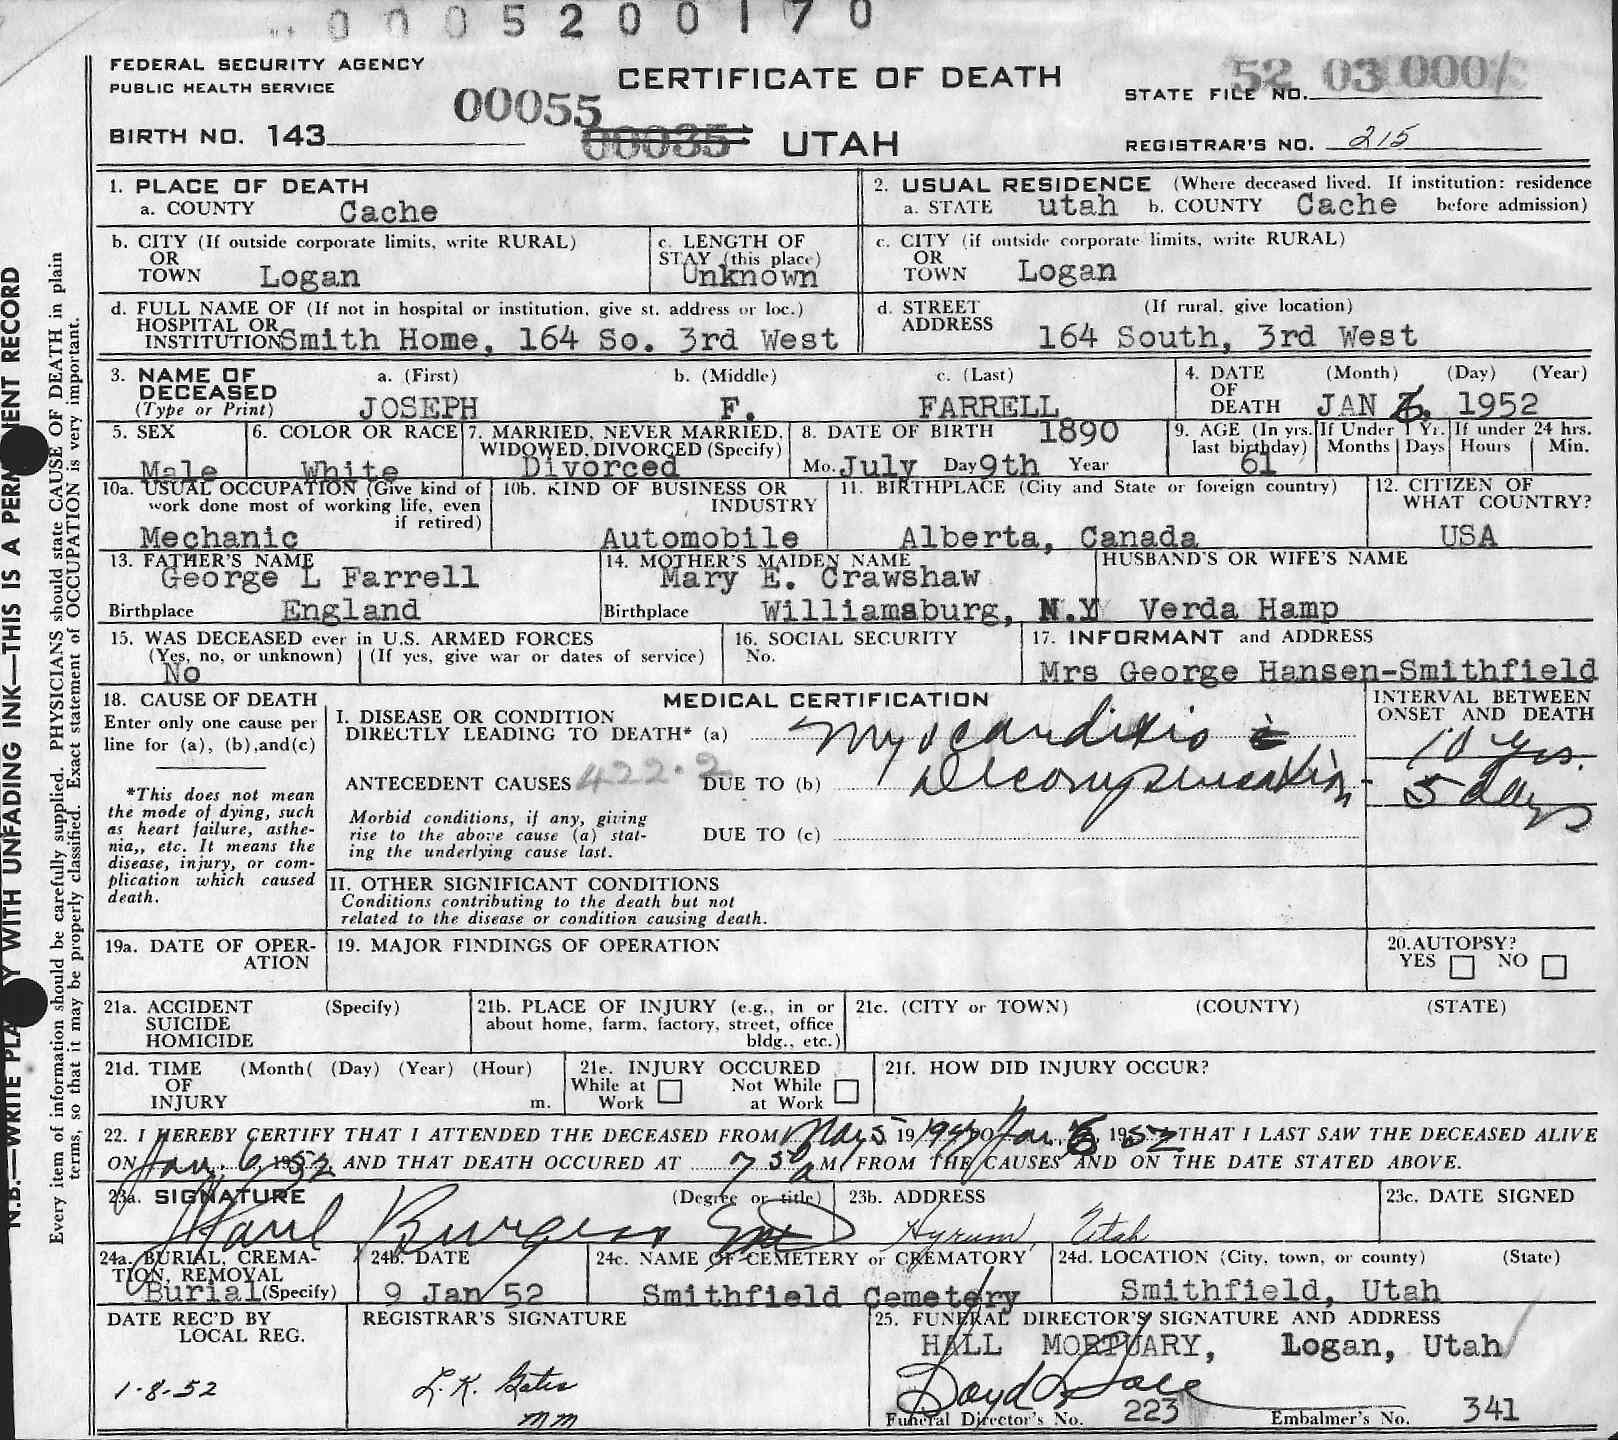 0005200170
FEDERAL SECURITY AGENCY
PUBLIC HEALTH SERVICE
CERTIFICATE OF DEATH
STATE FILE NO. 52 03 000
00055
BIRTH NO. 143
00035
UTAH
REGISTRAR'S NO. 215
1. PLACE OF DEATH
a. COUNTY Cache
2. USUAL RESIDENCE (Where deceased lived. If institution: residence before admission)
a. STATE utah b. COUNTY Cache
b. CITY (If outside corporate limits, write RURAL)
OR
TOWN Logan
c. LENGTH OF
STAY (this place)
Unknown
c. CITY (if outside corporate limits, write RURAL)
OR
TOWN Logan
d. FULL NAME OF (If not in hospital or institution, give st. address or loc.)
HOSPITAL OR
INSTITUTION Smith Home, 164 So. 3rd West
d. STREET (If rural, give location)
ADDRESS
164 South, 3rd West
3. NAME OF
DECEASED
(Type or Print)
a. (First) b. (Middle) c. (Last)
JOSEPH F. FARRELL
4. DATE (Month) (Day) (Year)
OF
DEATH JAN 6. 1952
5. SEX
Male
6. COLOR OR RACE
White
7. MARRIED, NEVER MARRIED,
WIDOWED, DIVORCED (Specify)
Divorced
8. DATE OF BIRTH 1890
Mo. July Day 9th Year
9. AGE (In yrs.
last birthday)
61
If Under 1 Yr.
Months Days
If under 24 hrs.
Hours Min.
10a. USUAL OCCUPATION (Give kind of
work done most of working life, even
if retired)
Mechanic
10b. KIND OF BUSINESS OR
INDUSTRY
Automobile
11. BIRTHPLACE (City and State or foreign country)
Alberta, Canada
12. CITIZEN OF
WHAT COUNTRY?
USA
13. FATHER'S NAME
George L Farrell
Birthplace England
14. MOTHER'S MAIDEN NAME
Mary E. Crawshaw
Birthplace Williamsburg, N.Y
HUSBAND'S OR WIFE'S NAME
Verda Hamp
15. WAS DECEASED ever in U.S. ARMED FORCES
(Yes, no, or unknown) (If yes, give war or dates of service)
No
16. SOCIAL SECURITY
No.
17. INFORMANT and ADDRESS
Mrs George Hansen-Smithfield
18. CAUSE OF DEATH
Enter only one cause per
line for (a), (b), and (c)
*This does not mean
the mode of dying, such
as heart failure, asthe-
nia,, etc. It means the
disease, injury, or com-
plication which caused
death.
MEDICAL CERTIFICATION
I. DISEASE OR CONDITION
DIRECTLY LEADING TO DEATH* (a) Myocarditis c̄
ANTECEDENT CAUSES 422.2 DUE TO (b) Decompensation
Morbid conditions, if any, giving
rise to the above cause (a) stat-
ing the underlying cause last.
DUE TO (c)
INTERVAL BETWEEN
ONSET AND DEATH
10 yrs.
5 days
II. OTHER SIGNIFICANT CONDITIONS
Conditions contributing to the death but not
related to the disease or condition causing death.
19a. DATE OF OPER-
ATION
19. MAJOR FINDINGS OF OPERATION
20. AUTOPSY?
YES NO
21a. ACCIDENT (Specify)
SUICIDE
HOMICIDE
21b. PLACE OF INJURY (e.g., in or
about home, farm, factory, street, office
bldg., etc.)
21c. (CITY or TOWN) (COUNTY) (STATE)
21d. TIME (Month( (Day) (Year) (Hour)
OF
INJURY m.
21e. INJURY OCCURED
While at Work Not While at Work
21f. HOW DID INJURY OCCUR?
22. I HEREBY CERTIFY THAT I ATTENDED THE DECEASED FROM May 5 19 TO Jan. 6, 1952 THAT I LAST SAW THE DECEASED ALIVE
ON Jan. 6, 1952 AND THAT DEATH OCCURED AT 7 50 a M. FROM THE CAUSES AND ON THE DATE STATED ABOVE.
23a. SIGNATURE (Degree or title)
Burgess MD
23b. ADDRESS
Hyrum, Utah
23c. DATE SIGNED
24a. BURIAL, CREMA-
TION, REMOVAL
Burial (Specify)
24b. DATE
9 Jan 52
24c. NAME OF CEMETERY or CREMATORY
Smithfield Cemetery
24d. LOCATION (City, town, or county) (State)
Smithfield, Utah
DATE REC'D BY
LOCAL REG.
1-8-52
REGISTRAR'S SIGNATURE
L.K. Gates
mm
25. FUNERAL DIRECTOR'S SIGNATURE AND ADDRESS
HALL MORTUARY, Logan, Utah
Funeral Director's No. 223 Embalmer's No. 341
Every item of information should be carefully supplied. PHYSICIANS should state CAUSE OF DEATH in plain
terms, so that it may be properly classified. Exact statement of OCCUPATION is very important.